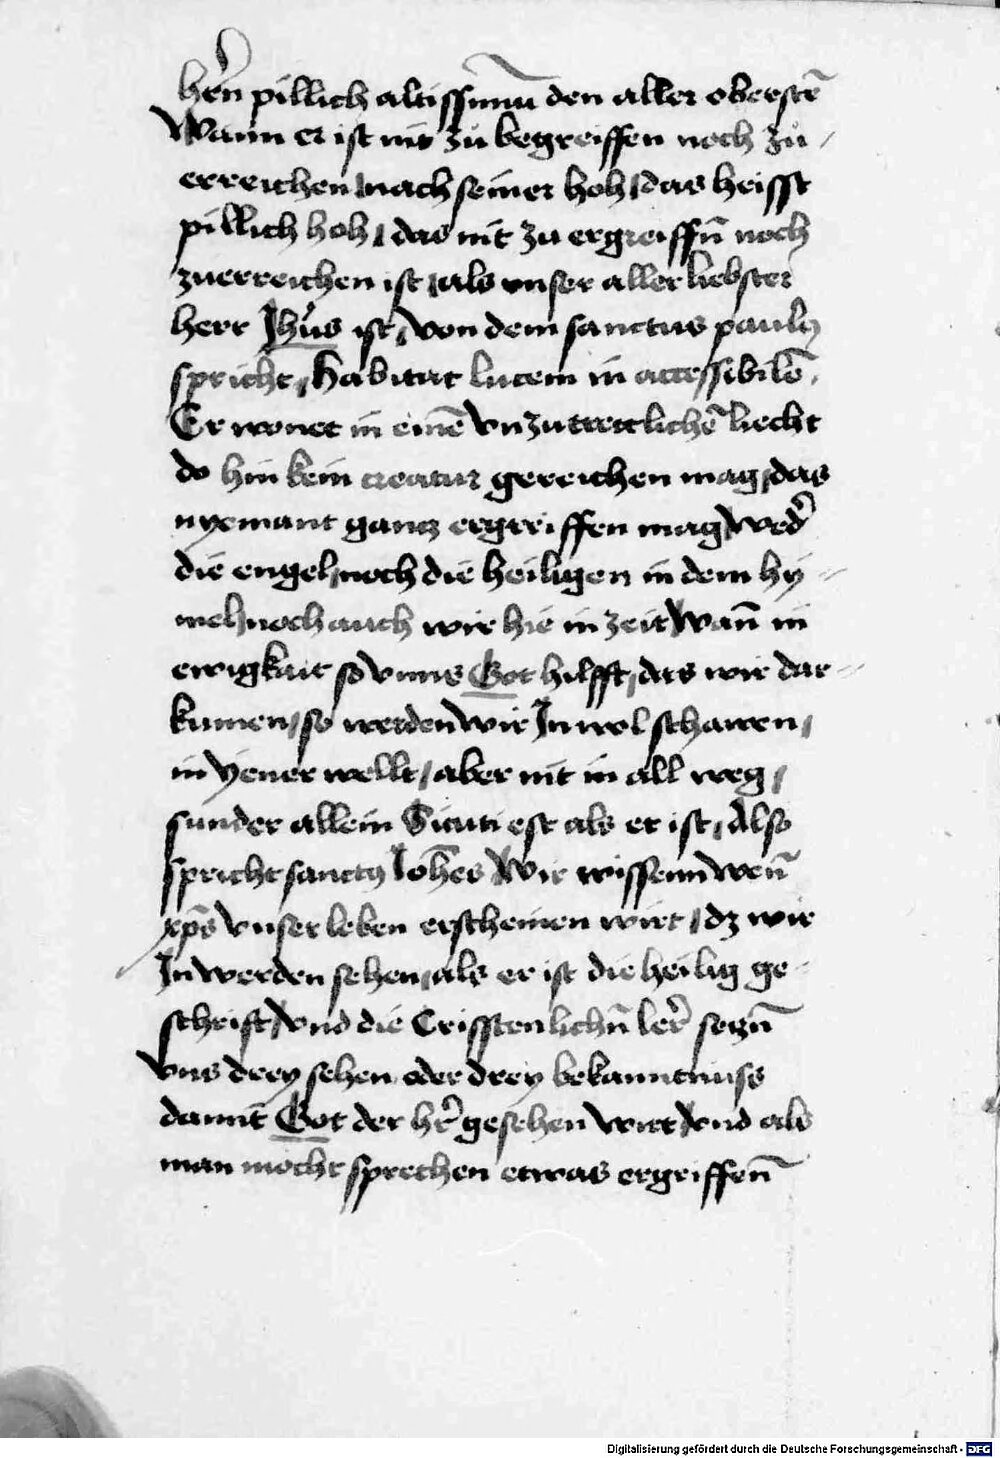 hern̄ pillich altissimū den aller oberstē
Wann er ist nit zů begreiffen noch zů
erreichen / nach seiner hoh / das heisst
pillich hoh / das nit zu ergreiffn̄ noch
zuerreichen ist / als vnser allerliebster
herr Jhūs ist / von dem sanctus paulꝯ
spricht / habitat lucem in accessibilē /
Er wonet in einē vnzutrettlichē liecht
do hin kein creatur gereichen mag / das
nyemant gantz ergreiffen mag / wedˀ
die engel / noch die heiligen in dem hy⸗
mel / noch auch wir hie in zeit / wan̄ in
ewigkait so vnns Got hilfft / das wir dar⸗
kumen / so werden wir Jn wol schawen /
in yener wellt / aber nit in all weg /
sunder allein Sicuti est als er ist / Also
spricht sanctꝯ Joh̄es / Wir wissenn wen̄
xp̄s vnser leben erscheinen wirt / dz wir
Jn werden sehen / als er ist die heilig ge⸗
schrift / vnd die Crisstenlichn̄ lerˀ setzn̄
vns drey sehen oder drey bekanntnuss
damit Got der hˀr gesehen wirt / vnd als
man mocht sprechen etwas ergriffen̄
Digitalisierung gefördert durch die Deutsche Forschungsgemeinschaft - DFG